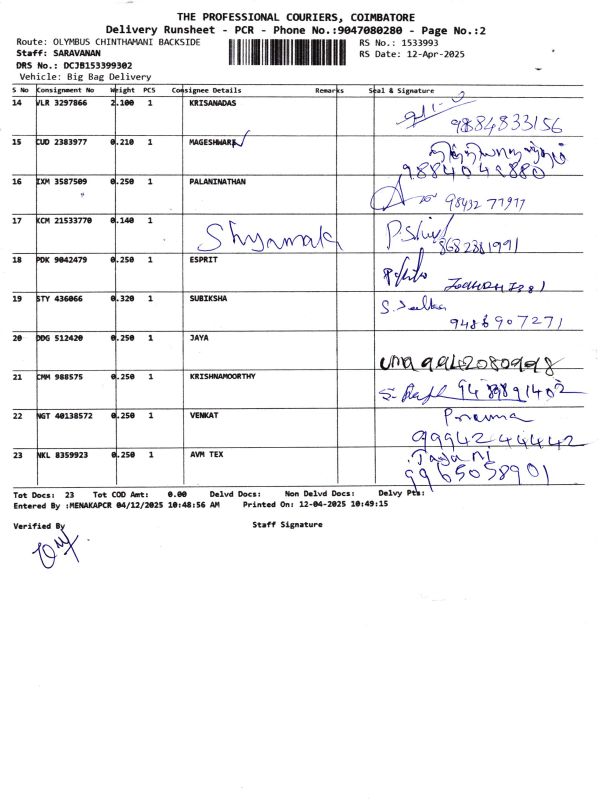 THE PROFESSIONAL COURIERS, COIMBATORE
Delivery Runsheet - PCR - Phone No.:9047080280 - Page No.:2
Route: OLYMBUS CHINTHAMANI BACKSIDE RS No.: 1533993
Staff: SARAVANAN RS Date: 12-Apr-2025
DRS No.: DCJB153399302
Vehicle: Big Bag Delivery
S No Consignment No Weight PCS Consignee Details Remarks Seal & Signature
14 VLR 3297866 2.100 1 KRISANADAS
9884833156
15 CUD 2383977 0.210 1 MAGESHWARI
9884048880
16 IXM 3587509 0.250 1 PALANINATHAN
98432 77977
17 KCM 21533770 0.140 1 Shyamala
8682381991
18 PDK 9042479 0.250 1 ESPRIT
19 STY 436066 0.320 1 SUBIKSHA
9486907271
20 DDG 512420 0.250 1 JAYA
uma 9942080998
21 CMM 988575 0.250 1 KRISHNAMOORTHY
22 NGT 40138572 0.250 1 VENKAT
9994244442
23 NKL 8359923 0.250 1 AVM TEX
9965058901
Tot Docs: 23 Tot COD Amt: 0.00 Delvd Docs: Non Delvd Docs: Delvy Pts:
Entered By :MENAKAPCR 04/12/2025 10:48:56 AM Printed On: 12-04-2025 10:49:15
Verified By Staff Signature